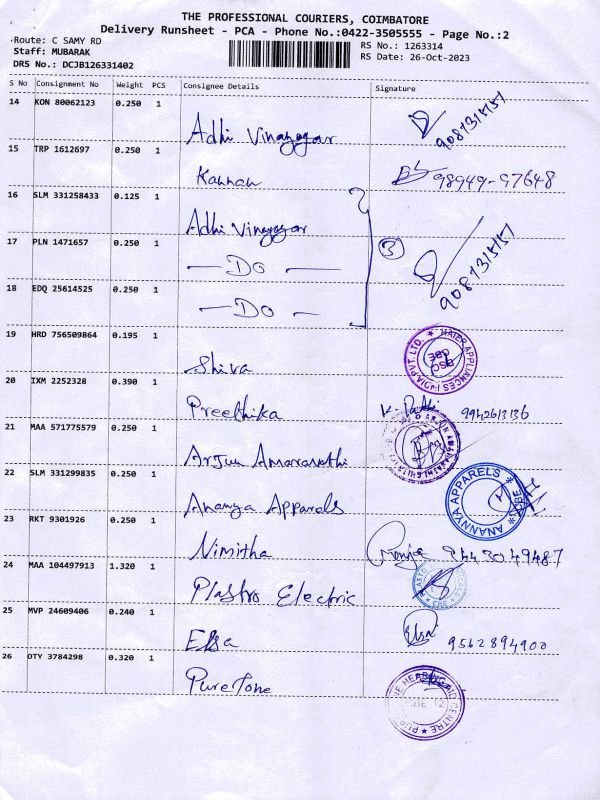 THE PROFESSIONAL COURIERS, COIMBATORE
Delivery Runsheet - PCA - Phone No.:0422-3505555 - Page No.:2
Route: C SAMY RD
Staff: MUBARAK
DRS No.: DCJB126331402
RS No.: 1263314
RS Date: 26-Oct-2023
S No Consignment No Weight PCS Consignee Details Signature
14 KON 80062123 0.250 1
Adhi Vinayagar 9087315151
15 TRP 1612697 0.250 1
Kannan 98949-97648
16 SLM 331258433 0.125 1
Adhi Vinayagar
17 PLN 1471657 0.250 1
— Do — 3 9087315151
18 EDQ 25614525 0.250 1
— Do —
19 HRD 756509864 0.195 1
Shiva HAIER APPLIANCES PVT. LTD.
20 IXM 2252328 0.390 1
Preethika 9942613136
21 MAA 571775579 0.250 1
Arjun Amaravathi
22 SLM 331299835 0.250 1
Ananya Apparels ANANNYA APPAREL'S * CBE *
23 RKT 9301926 0.250 1
Nimitha 9443049487
24 MAA 104497913 1.320 1
Plastro Electric
25 MVP 24609406 0.240 1
Elsa Elsa 9562894900
26 OTY 3784298 0.320 1
PureTone HEARING AID CENTRE